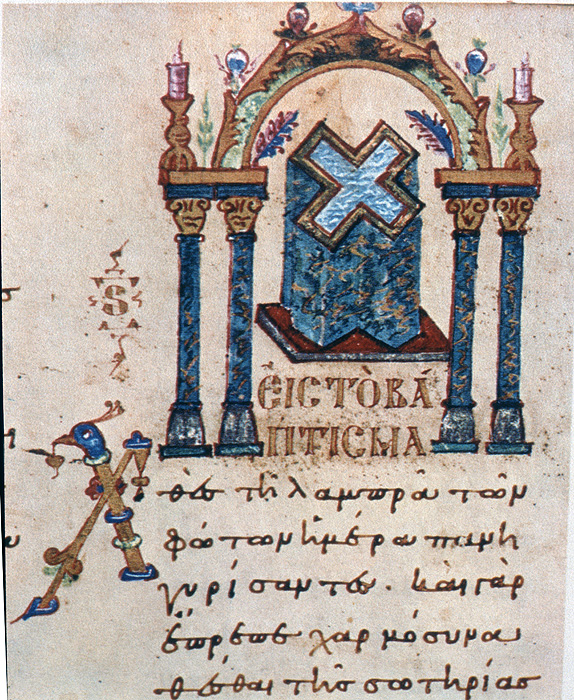 Ϛ
ΕἸΣ ΤῸ ΒΆ
ΠΤΙΣΜΑ
Χθὲς τῆ λαμπρᾶ τῶν
φώτων ἡμέρα πανη
γυρίσαντες. καὶ γὰρ
ἔπρεπε χαρμόσυνα
θέσθαι τῆς σωτηρίας